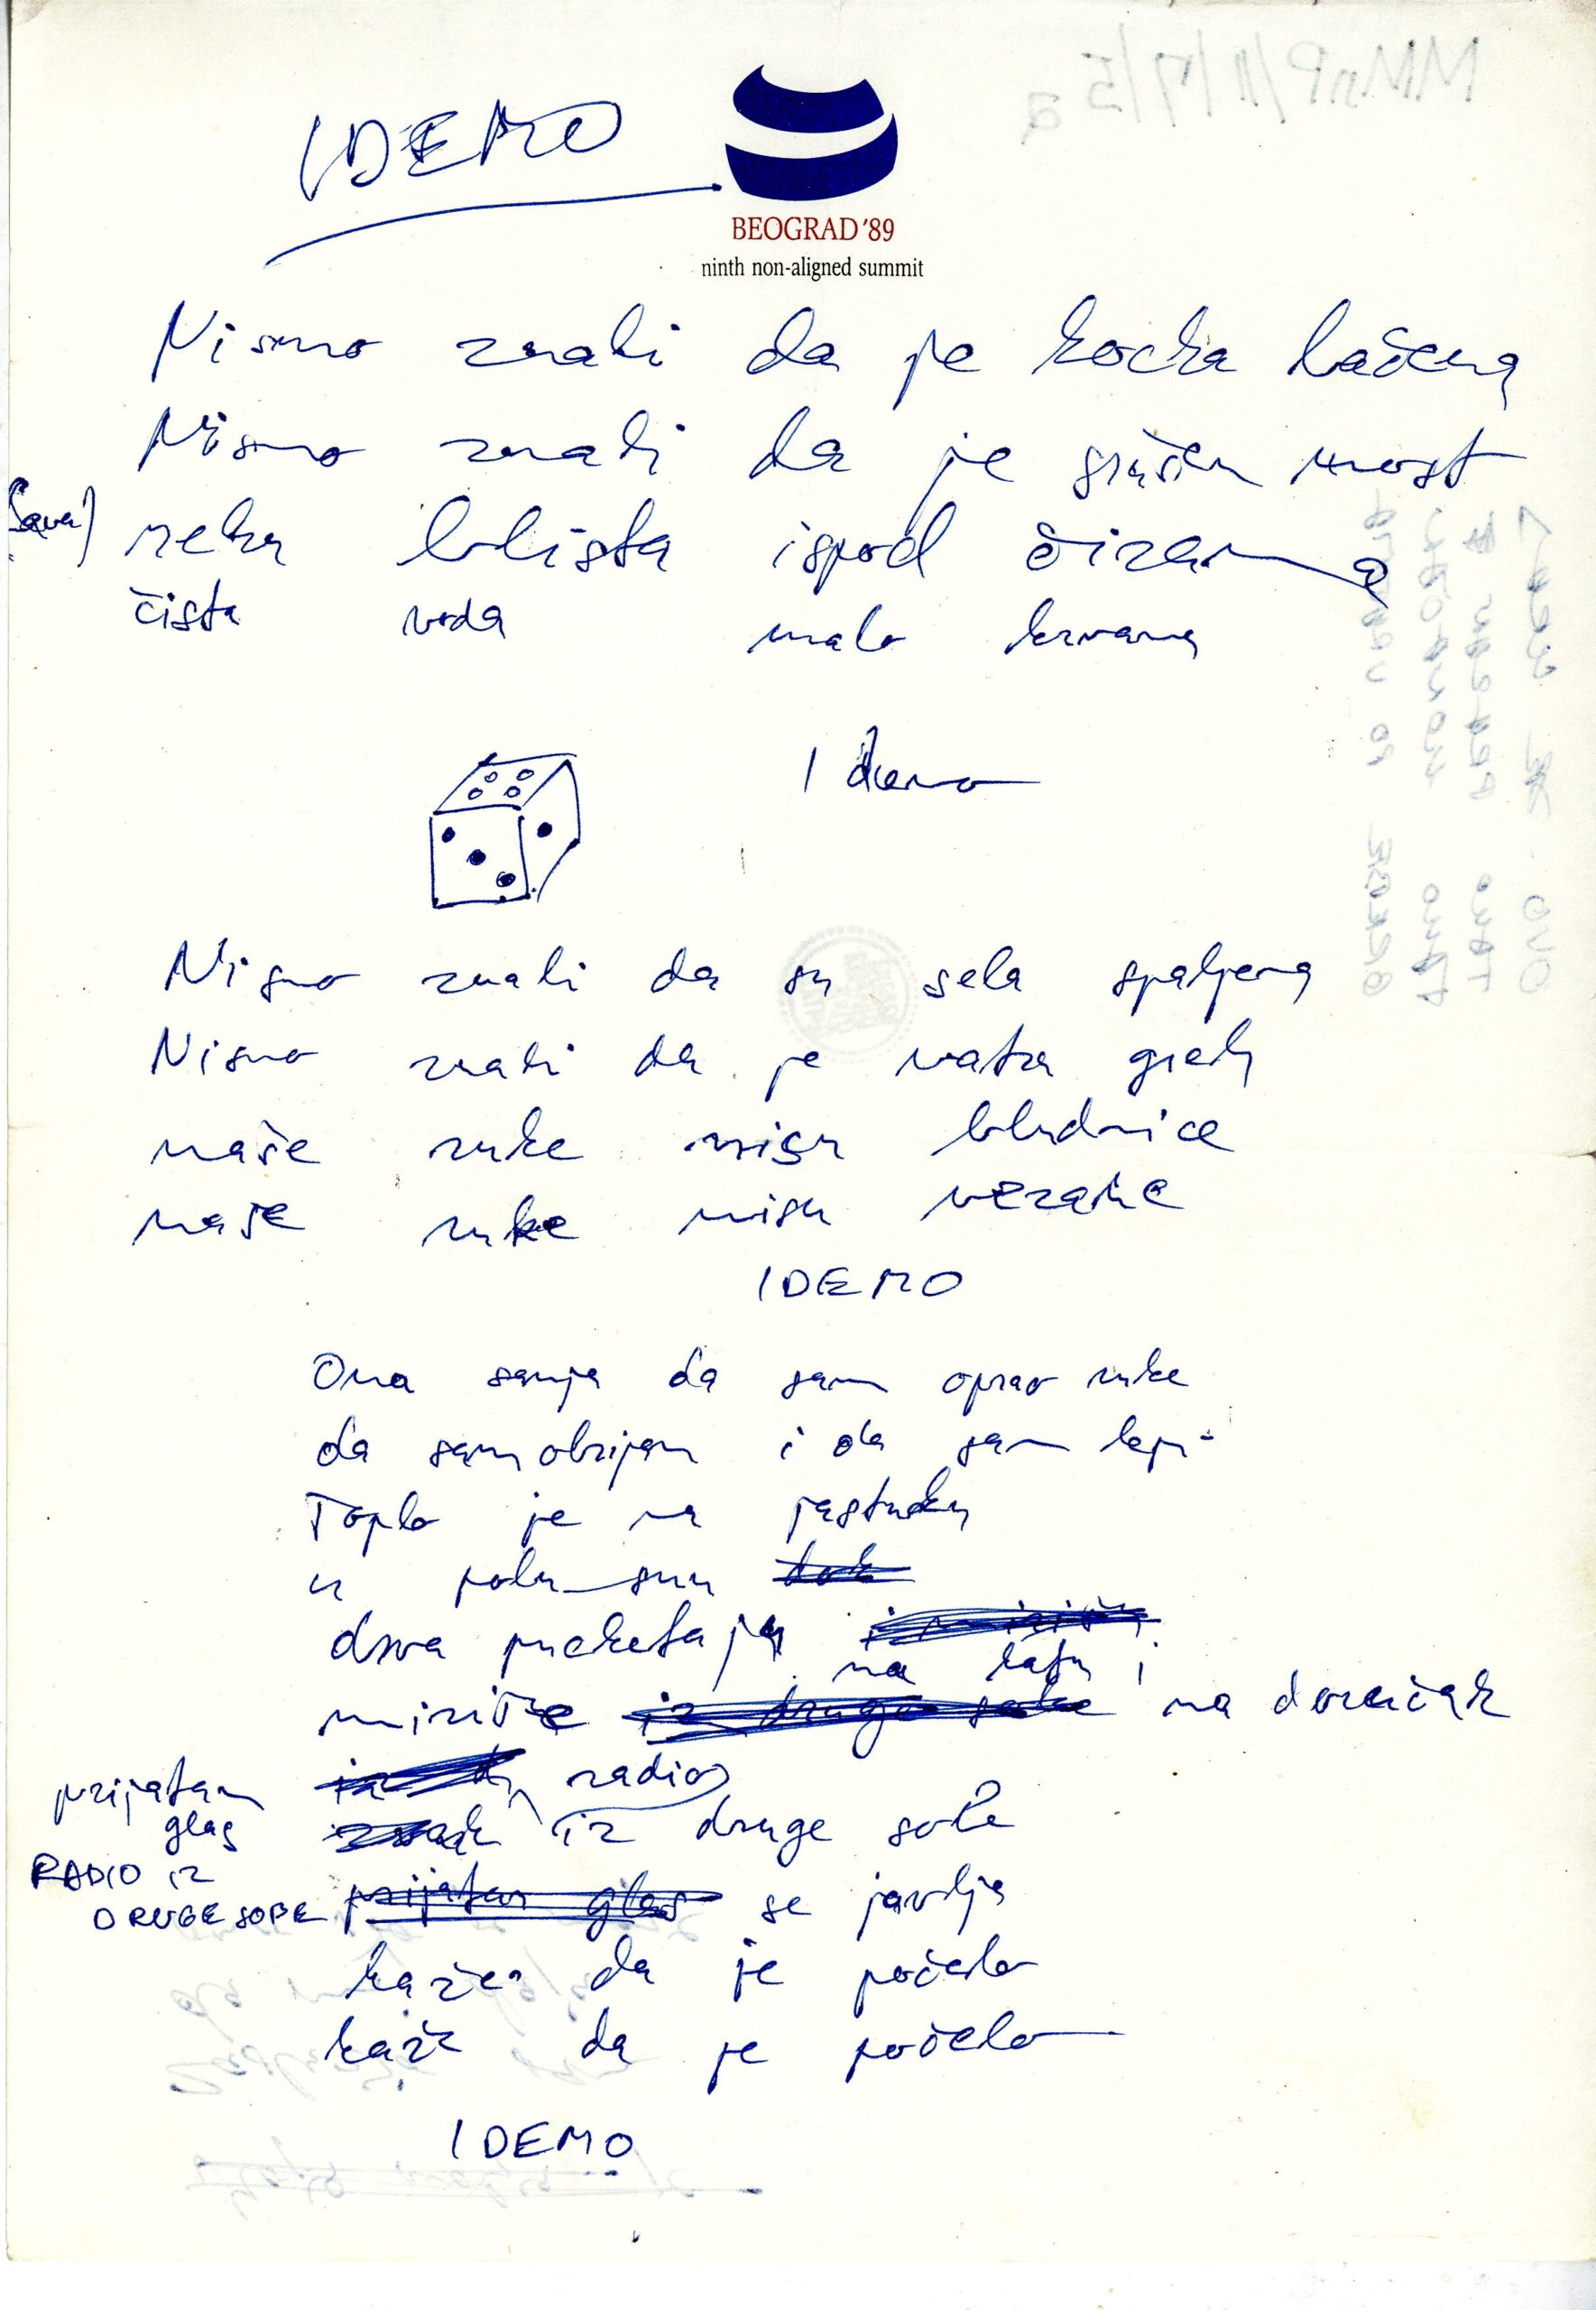 IDEMO
BEOGRAD '89
ninth non-aligned summit
Nismo znali da je kocka bačena
Nismo znali da je srušen most
(Sava) reka blista ispod
čista voda malo krvava
Idemo
Nismo znali da su sela spaljena
Nismo znali da je vatra greh
naše ruke nisu bludnice
naše ruke nisu vezane
IDEMO
Ona sanja da sam oprao ruke
da sam obrijan i da sam lep
Toplo je na jastuku
u polu-snu dok
drva pucketaju i miriše
na kafu i
miriše iz druge sobe na doručak
prijatan radio
glas zvuk iz druge sobe
RADIO IZ
DRUGE SOBE prijatan glas se javlja
kaže da je počelo
kaže da je počelo
IDEMO
MMnP/11/7/5a